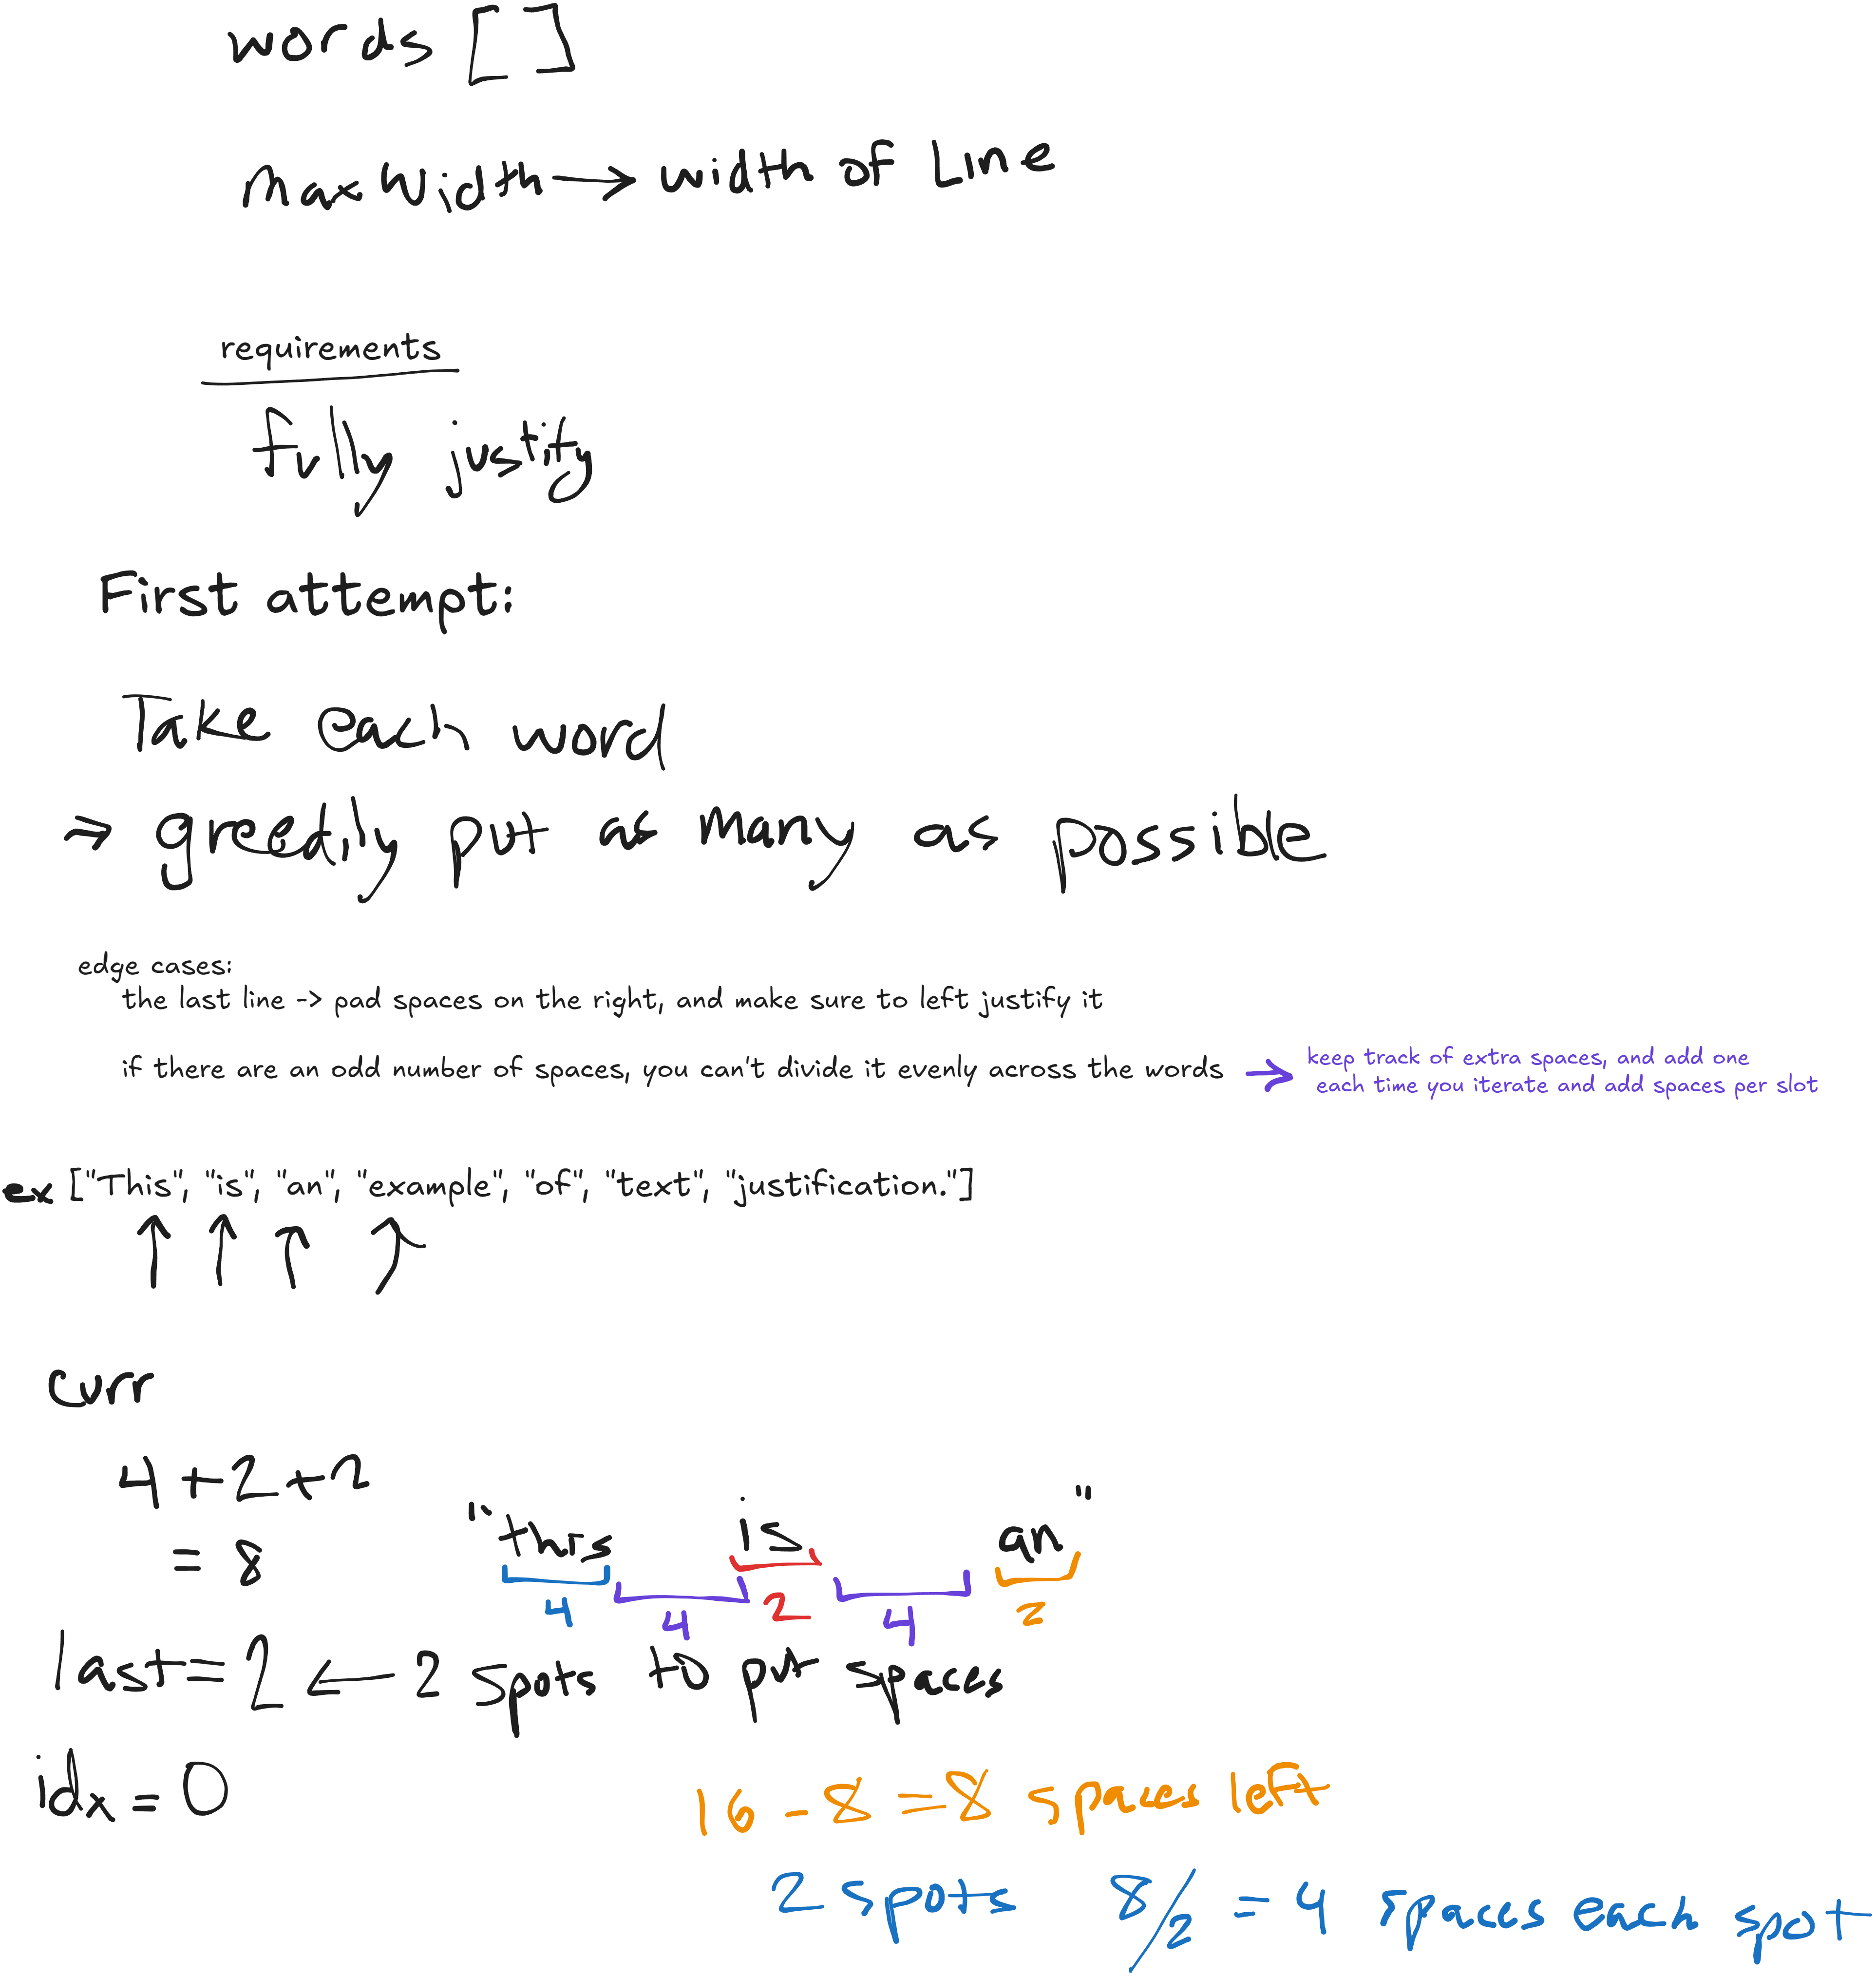 words []
maxWidth → width of line
requirements
fully justify
First attempt:
Take each word
→ greedily put as many as possible
edge cases:
the last line -> pad spaces on the right, and make sure to left justify it
if there are an odd number of spaces, you can't divide it evenly across the words → keep track of extra spaces, and add one
each time you iterate and add spaces per slot
ex ["This", "is", "an", "example", "of", "text", "justification."]
↑ ↑ ↑ ↑
curr
4+2+2
= 8
"this is an"
4 4 2 4 2
last = 2 ← 2 spots to put spaces
idx = 0
16 - 8 = 8 spaces left
2 spots 8/2 = 4 spaces each spot